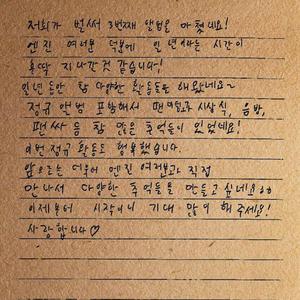 저희가 벌써 3번째 앨범을 마쳤네요!
엔진 여러분 덕분에 인 년이라는 시간이
훌딱 지나간것 같습니다!
인년동안 참 다양한 활동도 해왔네요~
정규 앨범 포함해서 팬 미팅고 시상식, 음방,
팬싸 등 참 많은 추억들이 있었네요!
이번 정규 활동도 행복했습니다.
앞으로는 더욱더 엔진 여러분과 직접
만나서 다양한 추억들을 만들고 싶네요ㅎㅎ
이제부터 시작이니 기대 많이 해주세요!
사랑합니다♡